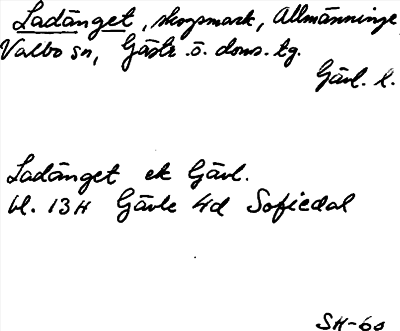 Ladänget, skogsmark, Allmänninge,
Valbo sn, Gästr. ö. doms. tg.
Gävl. l.
Ladänget ek Gävl.
bl. 13H Gävle 4d Sofiedal
SH-60